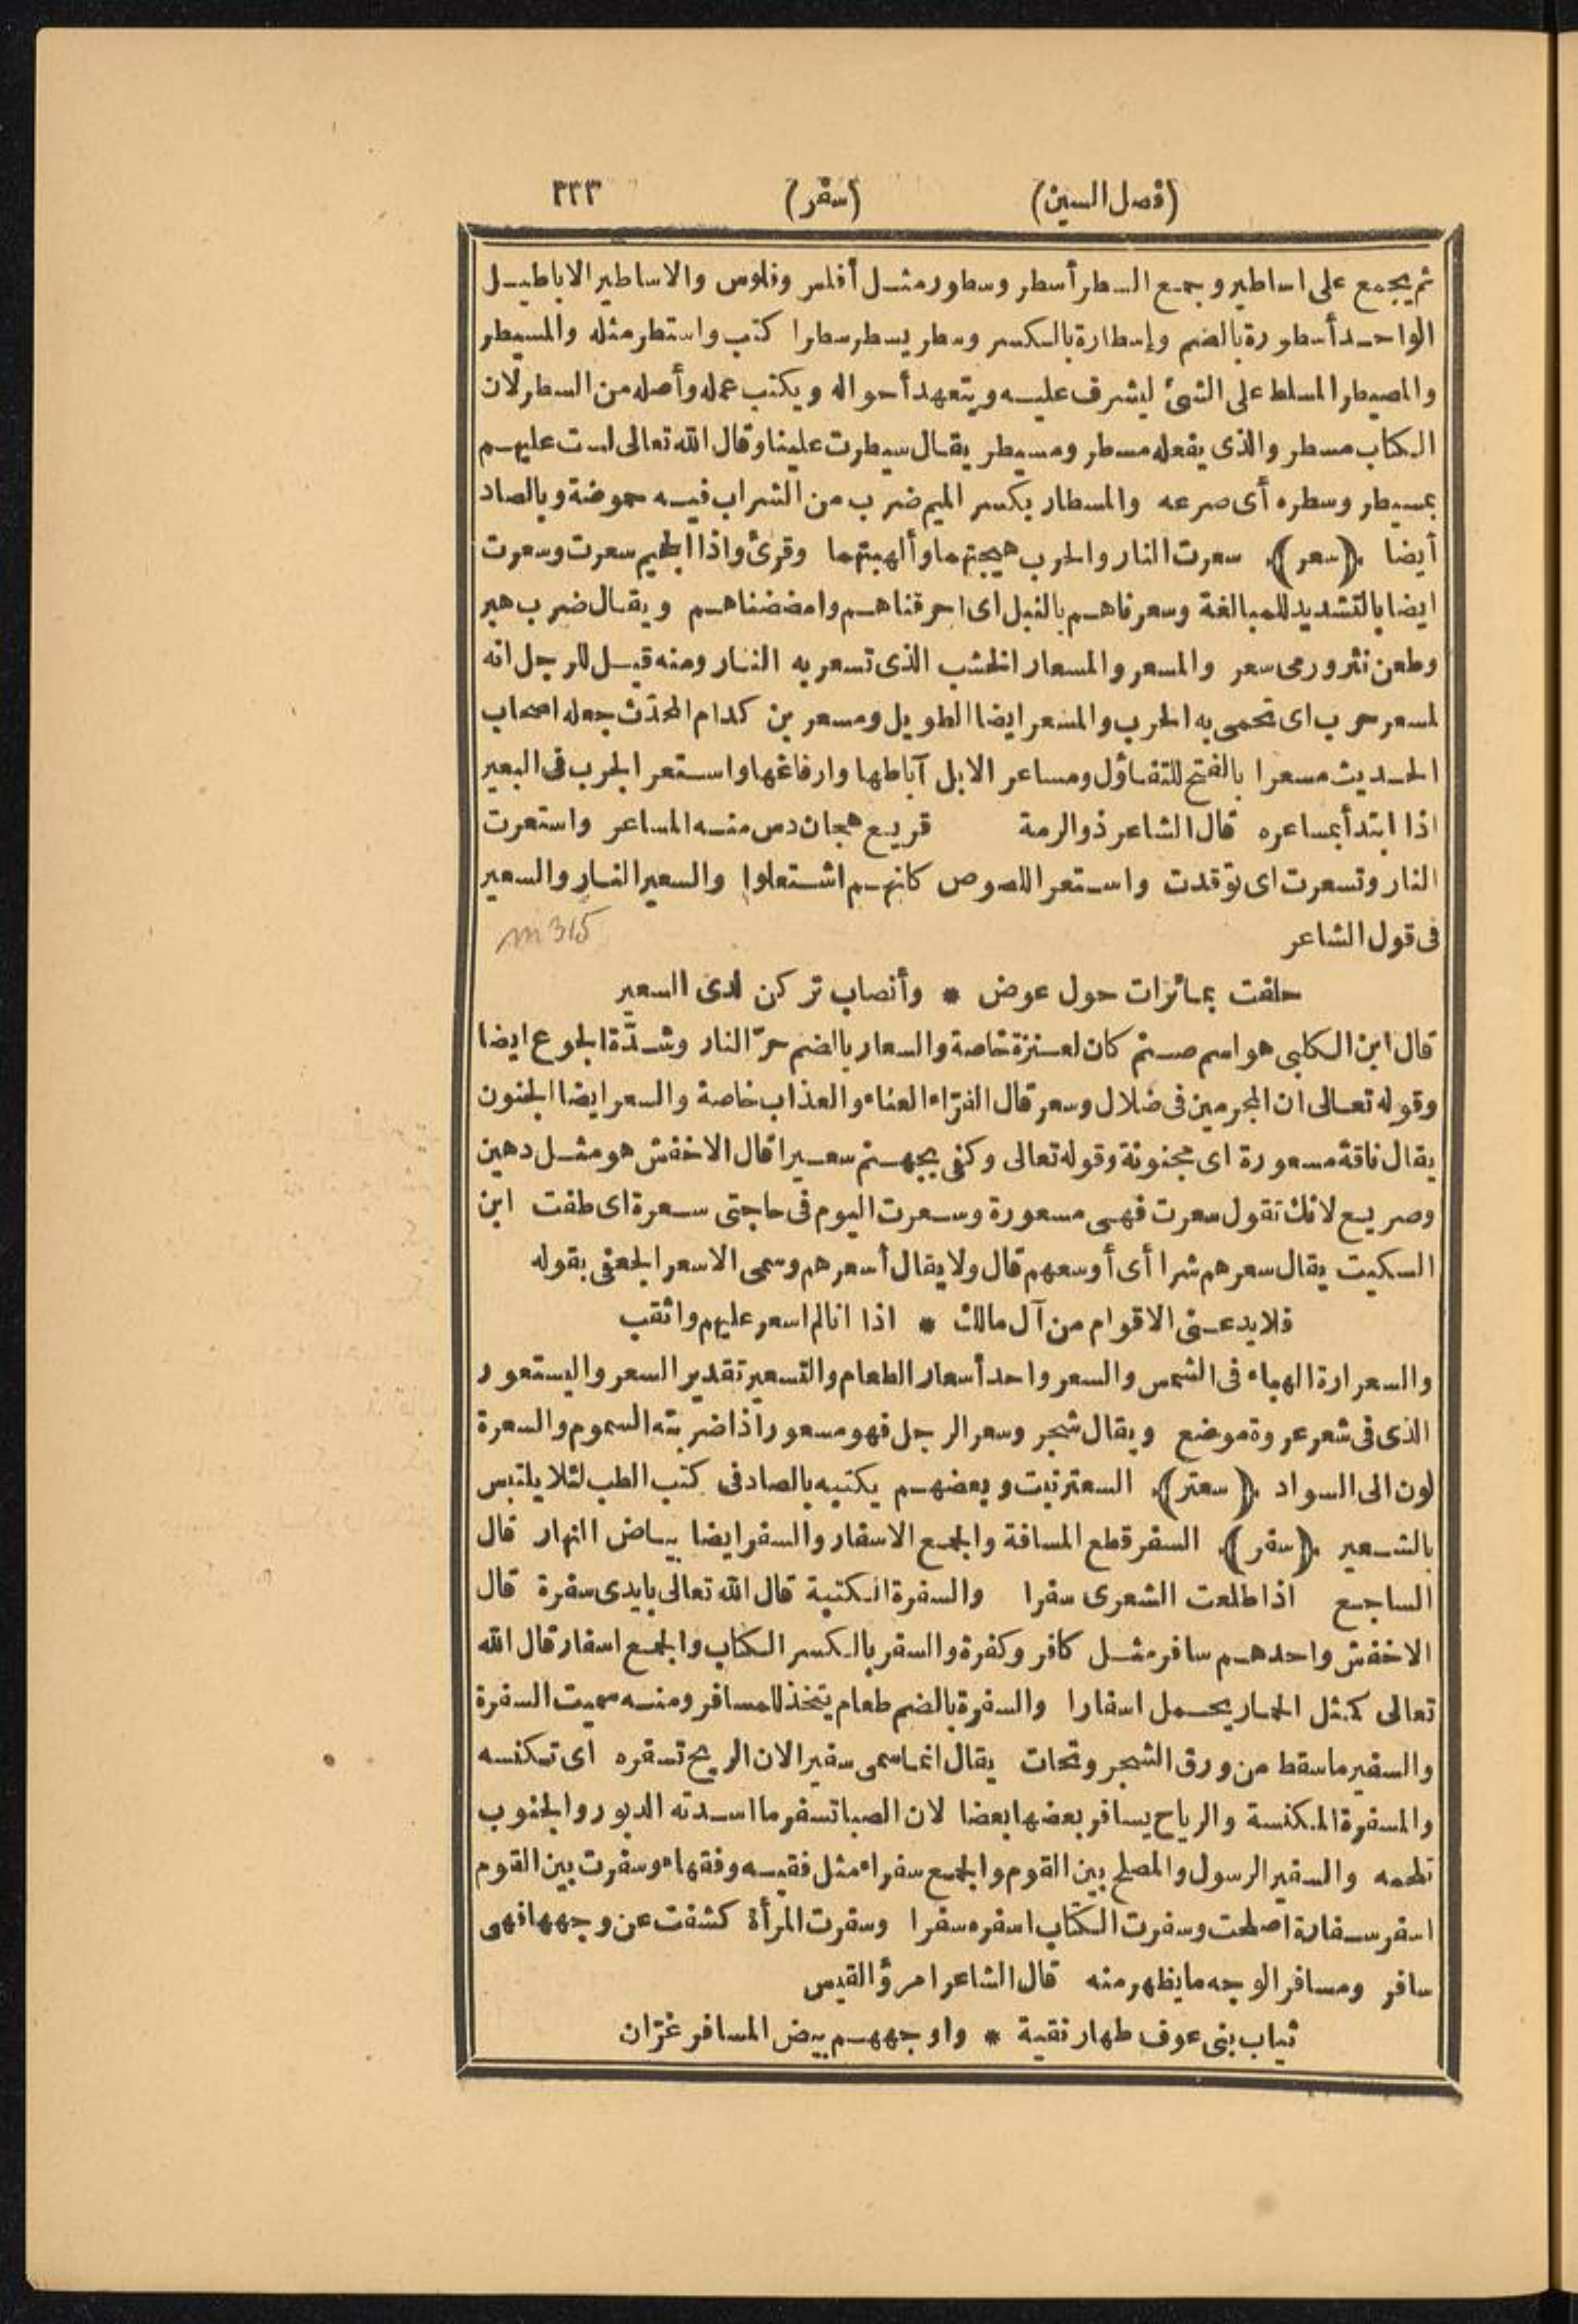 (فصل السين) (سفر) ٣٣٣
ثم يجمع على اساطير وجمع السطر أسطر وسطور مثل أفلس وفلوس والاساطير الاباطيل
الواحد أسطورة بالضم وإسطارة بالكسر وسطر يسطر سطرا كتب واستطر مثله والمسيطر
والمصيطر المسلط على الشئ ليشرف عليه ويتعهد أحواله ويكتب عمله وأصله من السطر لان
الكتاب مسطر والذى يفعله مسطر ومسيطر يقال سيطرت علينا وقال الله تعالى لست عليهم
بمسيطر وسطره أى صرعه والمسطار بكسر الميم ضرب من الشراب فيه حموضة وبالصاد
أيضا ﴿سعر﴾ سعرت النار والحرب هيجتهما وألهبتهما وقرئ واذا الجحيم سعرت وسعرت
ايضا بالتشديد للمبالغة وسعرناهم بالنبل اى احرقناهم وامضضناهم ويقال ضرب هبر
وطعن نثر ورمى سعر والمسعر والمسعار الخشب الذى تسعر به النار ومنه قيل للرجل انه
لمسعر حرب اى تحمى به الحرب والمسعر ايضا الطويل ومسعر بن كدام المحدّث جعله اصحاب
الحديث مسعرا بالفتح للتفاؤل ومساعر الابل آباطها وارفاغها واستعر الجرب فى البعير
اذا ابتدأ بمساعره قال الشاعر ذو الرمة قريع هجان دس منه المساعر واستعرت
النار وتسعرت اى توقدت واستعر اللصوص كانهم اشتعلوا والسعير النار والسعير
فى قول الشاعر m 315
حلفت بمائزات حول عوض * وأنصاب تركن لدى السعير
قال ابن الكلبى هو اسم صنم كان لعنزة خاصة والسعار بالضم حرّ النار وشدّة الجوع ايضا
وقوله تعالى ان المجرمين فى ضلال وسعر قال الفرّاء العناء والعذاب خاصة والسعر ايضا الجنون
يقال ناقة مسعورة اى مجنونة وقوله تعالى وكفى بجهنم سعيرا قال الاخفش هو مثل دهين
وصريع لانك تقول سعرت فهى مسعورة وسعرت اليوم فى حاجتى سعرة اى طفت ابن
السكيت يقال سعرهم شرا أى أوسعهم قال ولا يقال أسعرهم وسمى الاسعر الجعفى بقوله
فلا يدعنى الاقوام من آل مالك * اذا انالم اسعر عليهم واثقب
والسعرارة الهباء فى الشمس والسعر واحد أسعار الطعام والتسعير تقدير السعر واليستعور
الذى فى شعر عروة موضع ويقال شجر وسعر الرجل فهو مسعور اذا ضربته السموم والسعرة
لون الى السواد ﴿سعتر﴾ السعتر نبت وبعضهم يكتبه بالصاد فى كتب الطب لئلا يلتبس
بالشعير ﴿سفر﴾ السفر قطع المسافة والجمع الاسفار والسفر ايضا بياض النهار قال
الساجع اذا طلعت الشعرى سفرا والسفرة الكتبة قال الله تعالى بايدى سفرة قال
الاخفش واحدهم سافر مثل كافر وكفرة والسفر بالكسر الكتاب والجمع اسفار قال الله
تعالى كمثل الحمار يحمل اسفارا والسفرة بالضم طعام يتخذ للمسافر ومنه سميت السفرة
والسفير ما سقط من ورق الشجر وتحات يقال انما سمى سفيرا لان الريح تسفره اى تكنسه
والمسفرة المكنسة والرياح يسافر بعضها بعضا لان الصبا تسفر ما اسدته الدبور والجنوب
تلحمه والسفير الرسول والمصلح بين القوم والجمع سفراء مثل فقيه وفقهاء وسفرت بين القوم
اسفر سفارة اصلحت وسفرت الكتاب اسفره سفرا وسفرت المرأة كشفت عن وجهها فهى
سافر ومسافر الوجه ما يظهر منه قال الشاعر امرؤ القيس
ثياب بنى عوف طهار نقية * واوجههم بيض المسافر غرّان